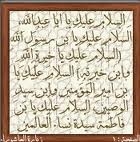 السلام عليك يا أبا عبدالله
السلام عليك يا بن رسول الله
السلام عليك يا خيرة الله
وابن خيرته السلام عليك يا
بن أمير المؤمنين وابن سيد
الوصيين السلام عليك يا بن
فاطمة سيدة نساء العالمين
زيارة عاشوراء